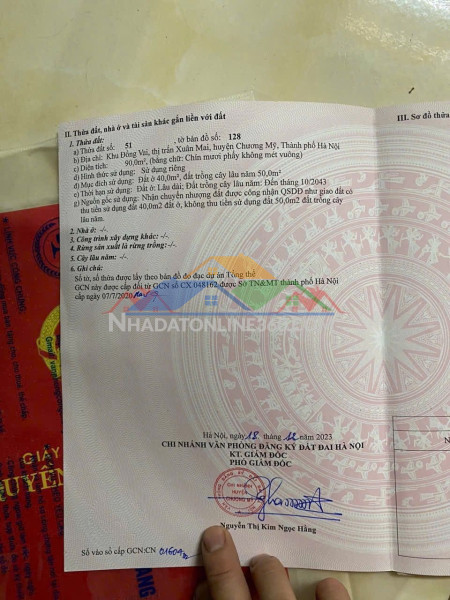 II. Thửa đất, nhà ở và tài sản khác gắn liền với đất
III. Sơ đồ thửa
1. Thửa đất:
a) Thửa đất số: 51 , tờ bản đồ số: 128
b) Địa chỉ: Khu Đồng Vai, thị trấn Xuân Mai, huyện Chương Mỹ, Thành phố Hà Nội
c) Diện tích: 90,0m², (bằng chữ: Chín mươi phẩy không mét vuông)
d) Hình thức sử dụng: Sử dụng riêng
đ) Mục đích sử dụng: Đất ở 40,0m², đất trồng cây lâu năm 50,0m²
e) Thời hạn sử dụng: Đất ở: Lâu dài; Đất trồng cây lâu năm: Đến tháng 10/2043
g) Nguồn gốc sử dụng: Nhận chuyển nhượng đất được công nhận QSDĐ như giao đất có
thu tiền sử dụng 40,0m2 đất ở, không thu tiền sử dụng đất 50,0m2 đất trồng cây
lâu năm.
2. Nhà ở: -/-.
3. Công trình xây dựng khác: -/-.
4. Rừng sản xuất là rừng trồng: -/-.
5. Cây lâu năm: -/-.
6. Ghi chú:
Số tờ, số thửa được lấy theo bản đồ đo đạc dự án Tổng thể
GCN này được cấp đổi từ GCN số CX 048162 được Sở TN&MT thành phố Hà Nội
cấp ngày 07/7/2020
NHADATONLINE36
Hà Nội, ngày 18 tháng 12 năm 2023
CHI NHÁNH VĂN PHÒNG ĐĂNG KÝ ĐẤT ĐAI HÀ NỘI
KT. GIÁM ĐỐC
PHÓ GIÁM ĐỐC
CHI NHÁNH
HUYỆN
CHƯƠNG MỸ
Nguyễn Thị Kim Ngọc Hằng
Số vào sổ cấp GCN:CN
GIẤY
QUYỀN